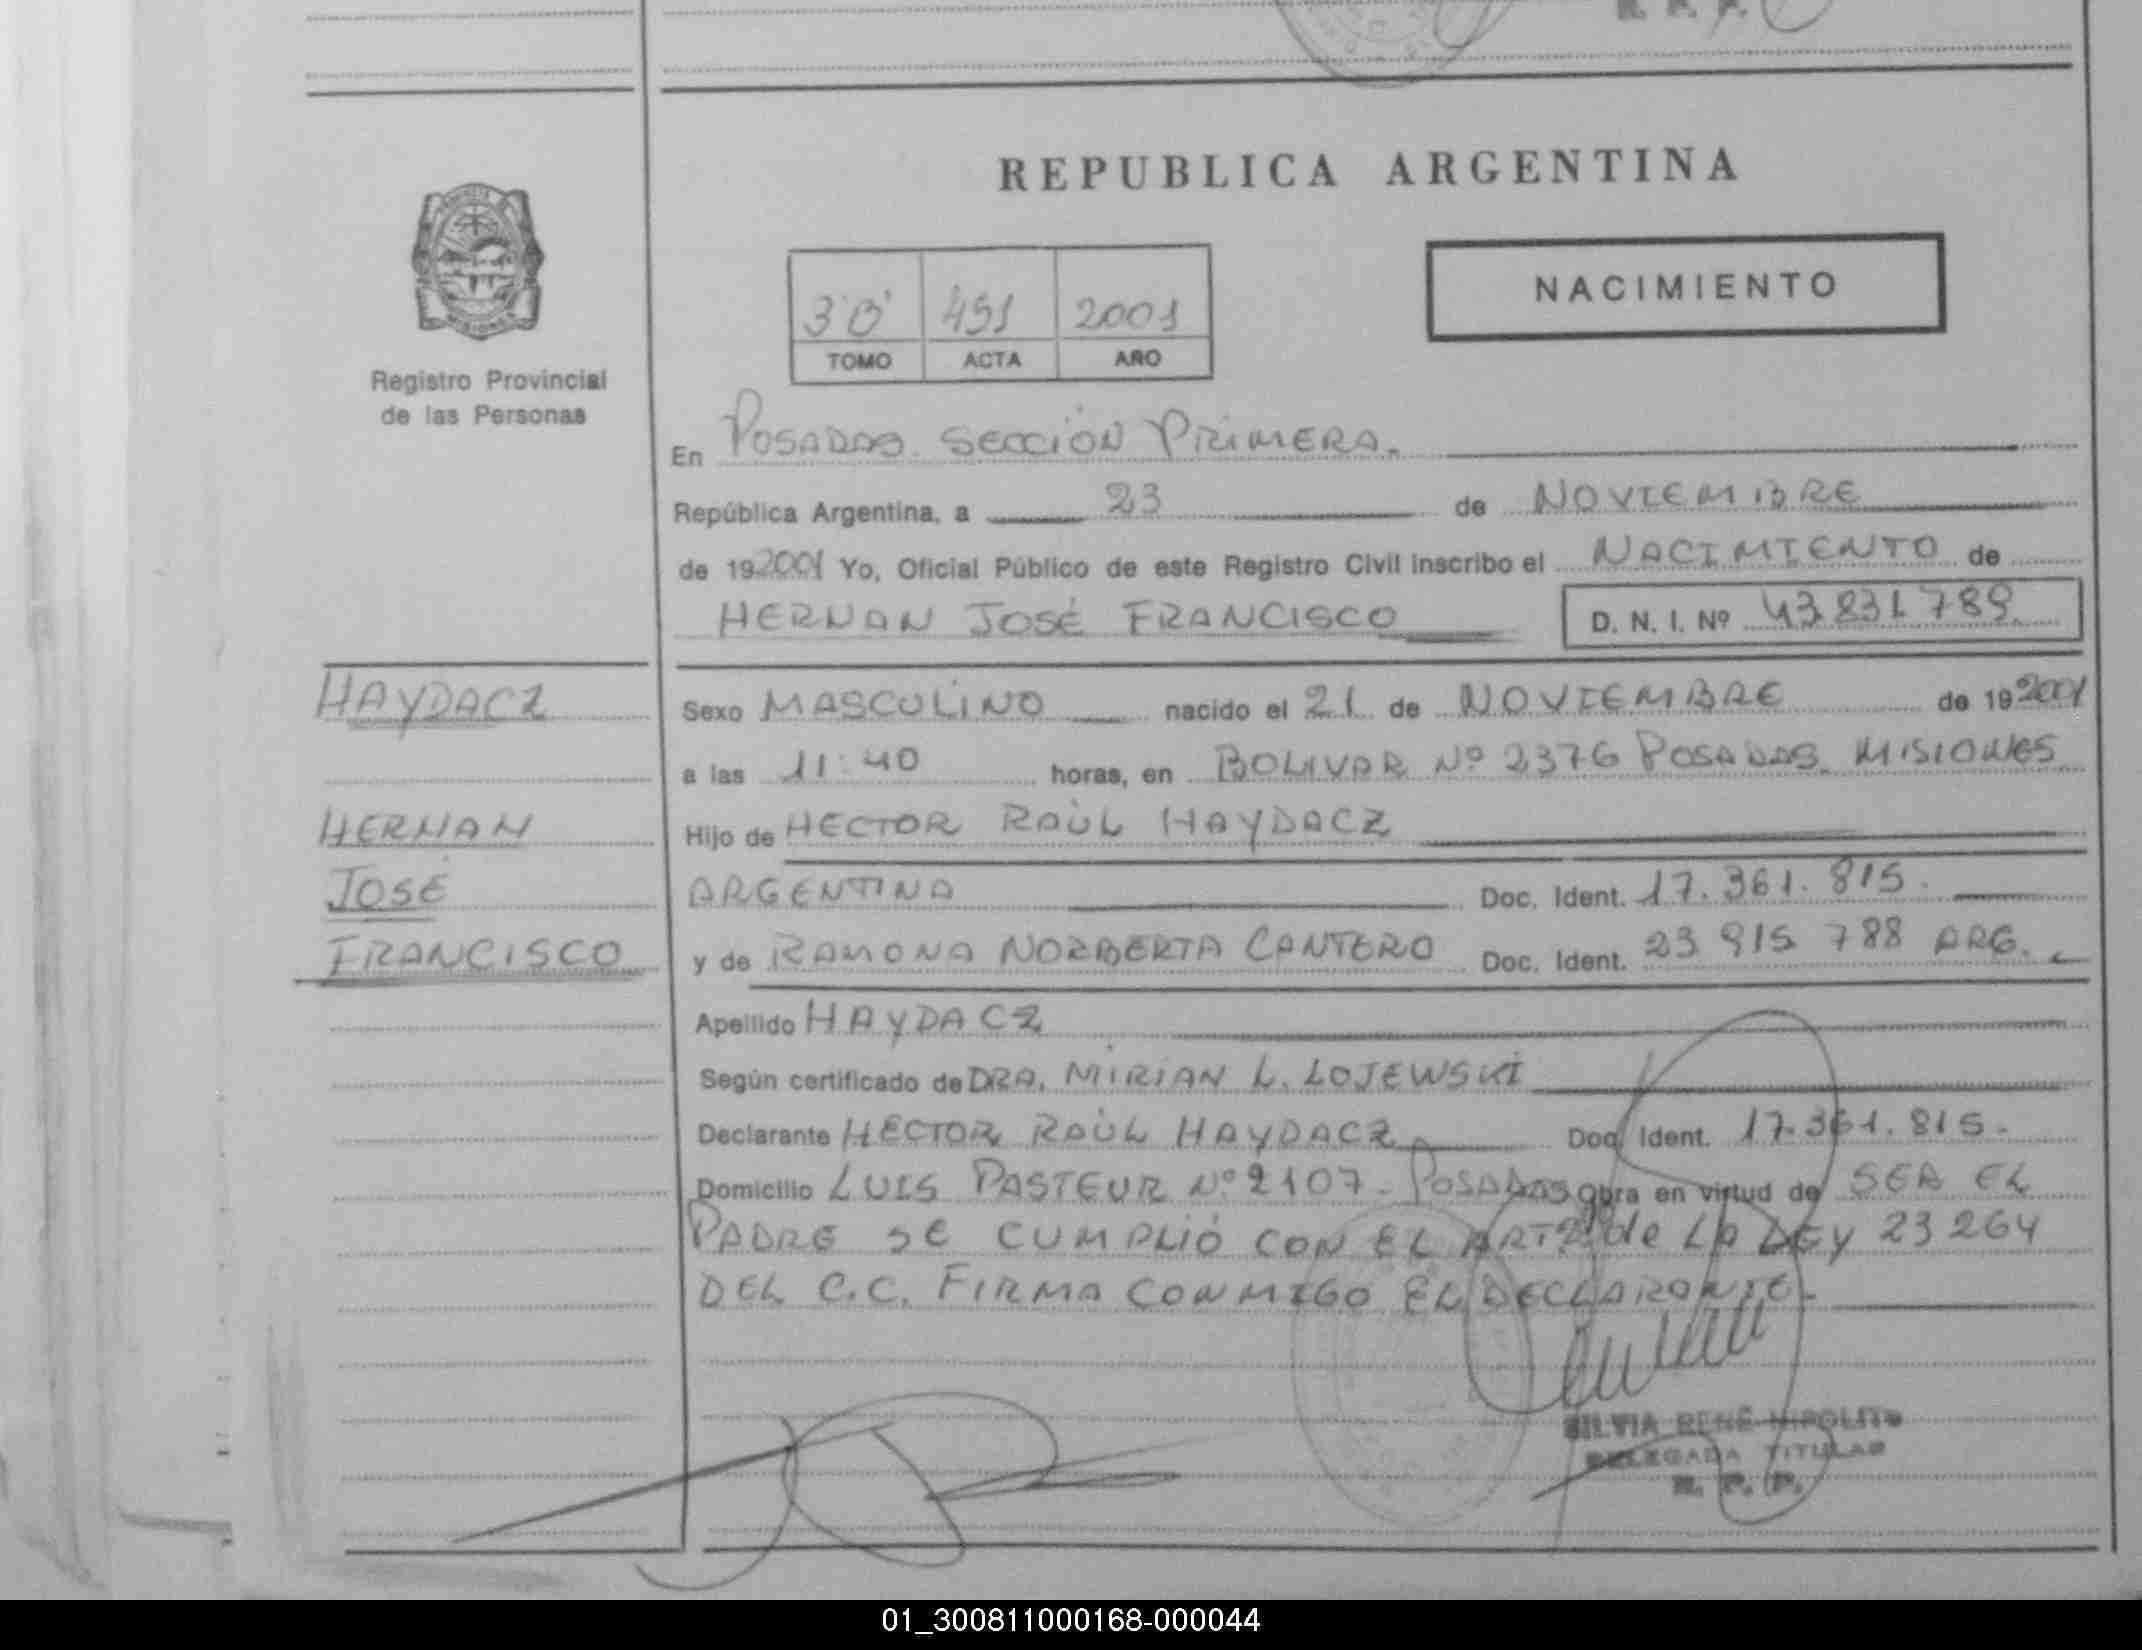 REPUBLICA ARGENTINA
NACIMIENTO
3 451 2001
TOMO ACTA AÑO
MISIONES
Registro Provincial
de las Personas
En POSADAS. SECCIÓN PRIMERA.
República Argentina, a 23 de NOVIEMBRE
de 192001 Yo, Oficial Público de este Registro Civil inscribo el NACIMIENTO de
HERNAN JOSÉ FRANCISCO D. N. I. Nº 43.831.789.
HAYDACZ
HERNAN
JOSÉ
FRANCISCO
Sexo MASCULINO nacido el 21 de NOVIEMBRE de 192001
a las 11:40 horas, en BOLIVAR Nº 2376 POSADAS. MISIONES
Hijo de HECTOR RAÚL HAYDACZ
ARGENTINA Doc. Ident. 17.361.815.
y de RAMONA NORBERTA CANTERO Doc. Ident. 23 915 788 ARG.
Apellido HAYDACZ
Según certificado de DRA. MIRIAN L. LOJEWSKI
Declarante HECTOR RAÚL HAYDACZ Doc. Ident. 17.361.815.
Domicilio LUIS PASTEUR Nº 2107 - POSADAS obra en virtud de SER EL
PADRE SE CUMPLIÓ CON EL ART 2 de LA LEY 23 264
DEL C.C. FIRMA CONMIGO EL DECLARANTE.
SILVIA RENÉ HIPOLITO
DELEGADA TITULAR
R. P. P.
01_300811000168-000044